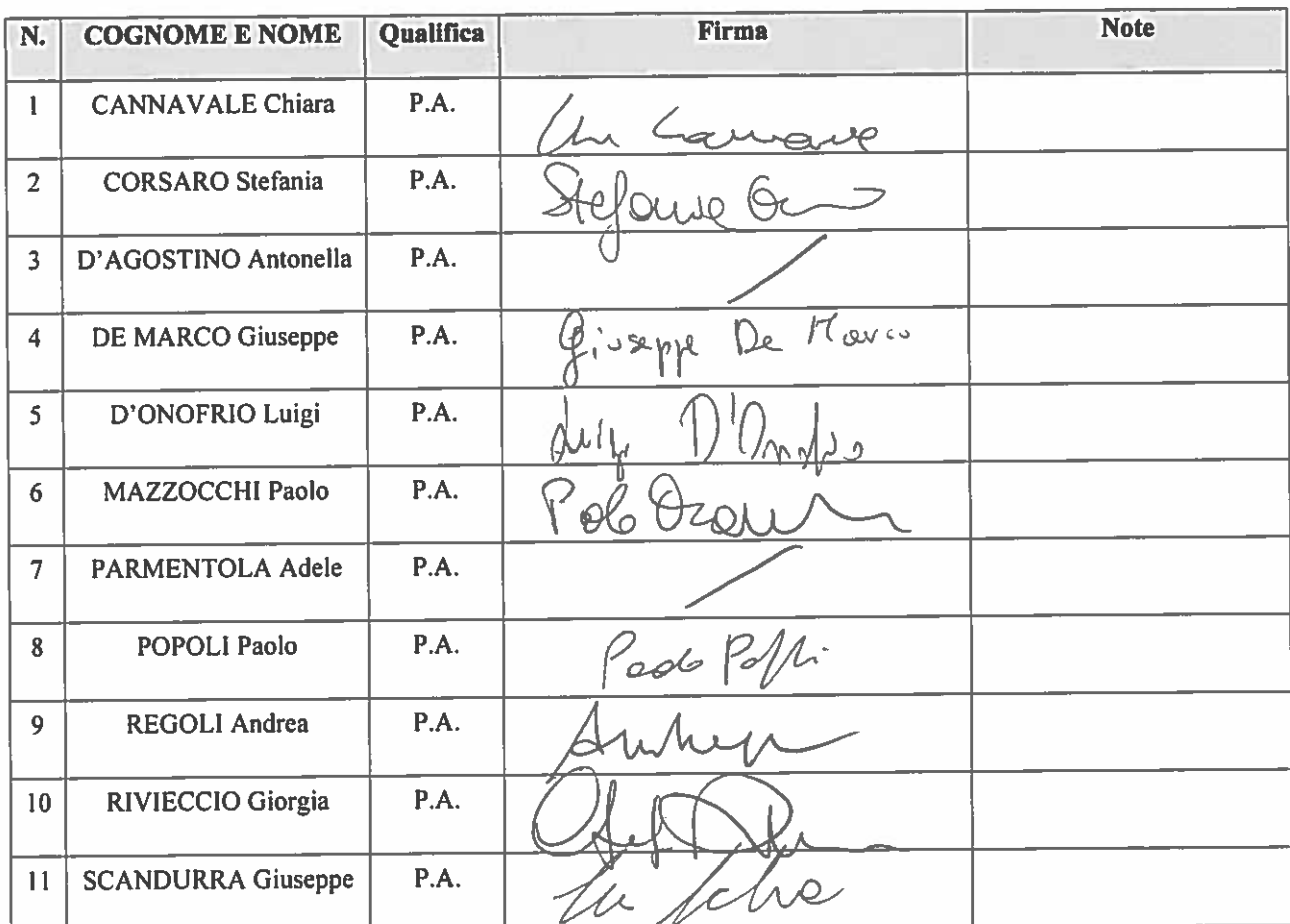 N. COGNOME E NOME Qualifica Firma Note
1 CANNAVALE Chiara P.A.
2 CORSARO Stefania P.A. Stefania
3 D'AGOSTINO Antonella P.A. /
4 DE MARCO Giuseppe P.A. Giuseppe De Marco
5 D'ONOFRIO Luigi P.A. Luigi D'Onofrio
6 MAZZOCCHI Paolo P.A. Paolo
7 PARMENTOLA Adele P.A. /
8 POPOLI Paolo P.A. Paolo Popoli
9 REGOLI Andrea P.A.
10 RIVIECCIO Giorgia P.A.
11 SCANDURRA Giuseppe P.A.